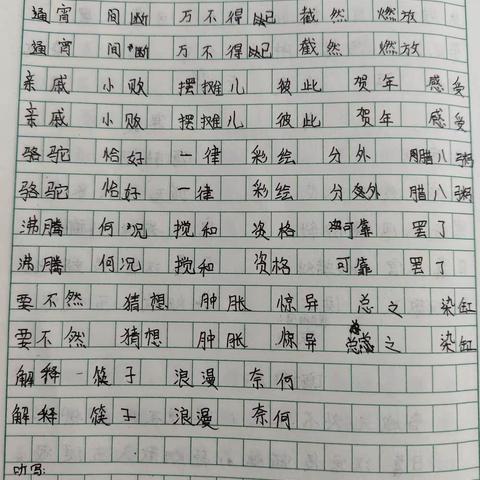 通宵 间断 万不得已 截然 燃放
通宵 间断 万不得已 截然 燃放
亲戚 小贩 摆摊儿 彼此 贺年 感受
亲戚 小贩 摆摊儿 彼此 贺年 感受
骆驼 恰好 一律 彩绘 分外 腊八粥
骆驼 恰好 一律 彩绘 分外 腊八粥
沸腾 何况 搅和 资格 可靠 罢了
沸腾 何况 搅和 资格 可靠 罢了
要不然 猜想 肿胀 惊异 总之 染缸
要不然 猜想 肿胀 惊异 总之 染缸
解释 筷子 浪漫 奈何
解释 筷子 浪漫 奈何
听写: